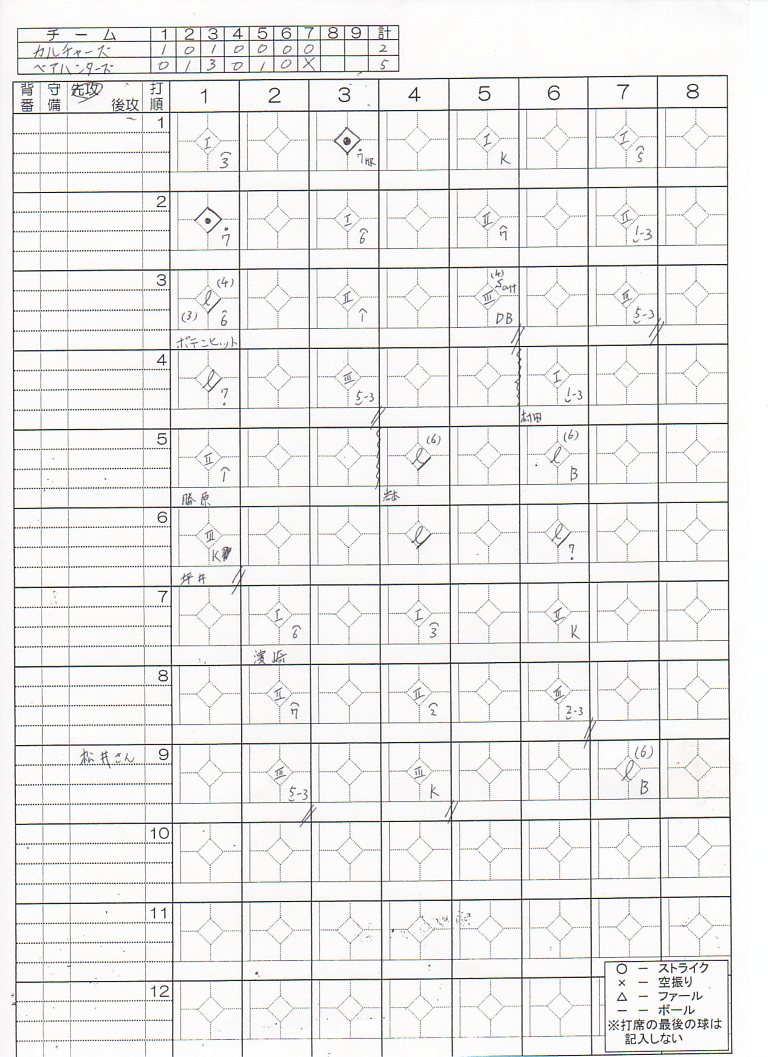 チーム 1 2 3 4 5 6 7 8 9 計
カルチャーズ 1 0 1 0 0 0 0 2
ベアハンターズ 0 1 3 0 1 0 X 5
背番 守備 先攻 後攻 打順 1 2 3 4 5 6 7 8
1 I 3 7HR I K I 5
2 7 I 6 II 7 II 1-3
3 l (4) (3) 6 II 1 (4) III DB III 5-3
ポテンヒット
4 l 7 III 5-3 I 1-3
村田
5 II 1 l (6) l (6) B
藤原 岩本
6 III K l l 7
坪井
7 I 6 I 3 II K
濱崎
8 II 7 II 2 III 2-3
松井さん 9 III 5-3 III K l (6) B
10
11
12
○ ー ストライク
× ー 空振り
△ ー ファール
ー ー ボール
※打席の最後の球は
記入しない